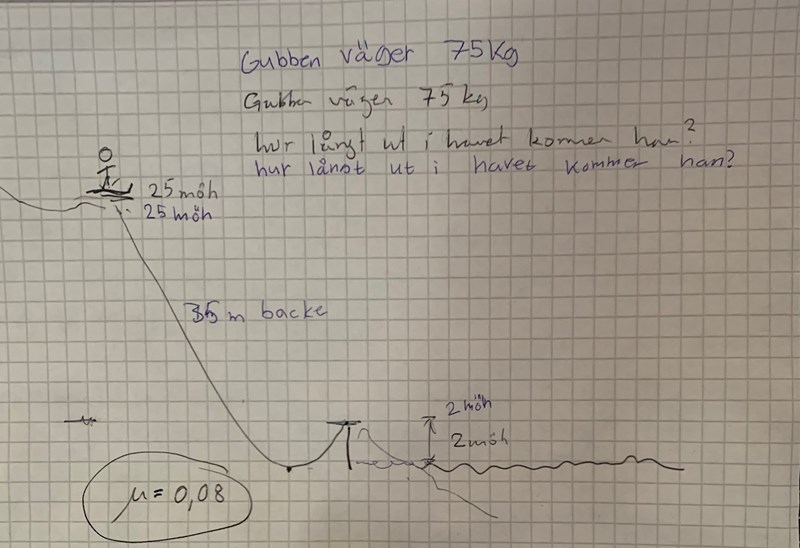 Gubben väger 75 kg
Gubben väger 75 kg
hur långt ut i havet kommer han?
hur långt ut i havet kommer han?
25 möh
25 möh
35 m backe
2 möh
2 möh
μ = 0,08